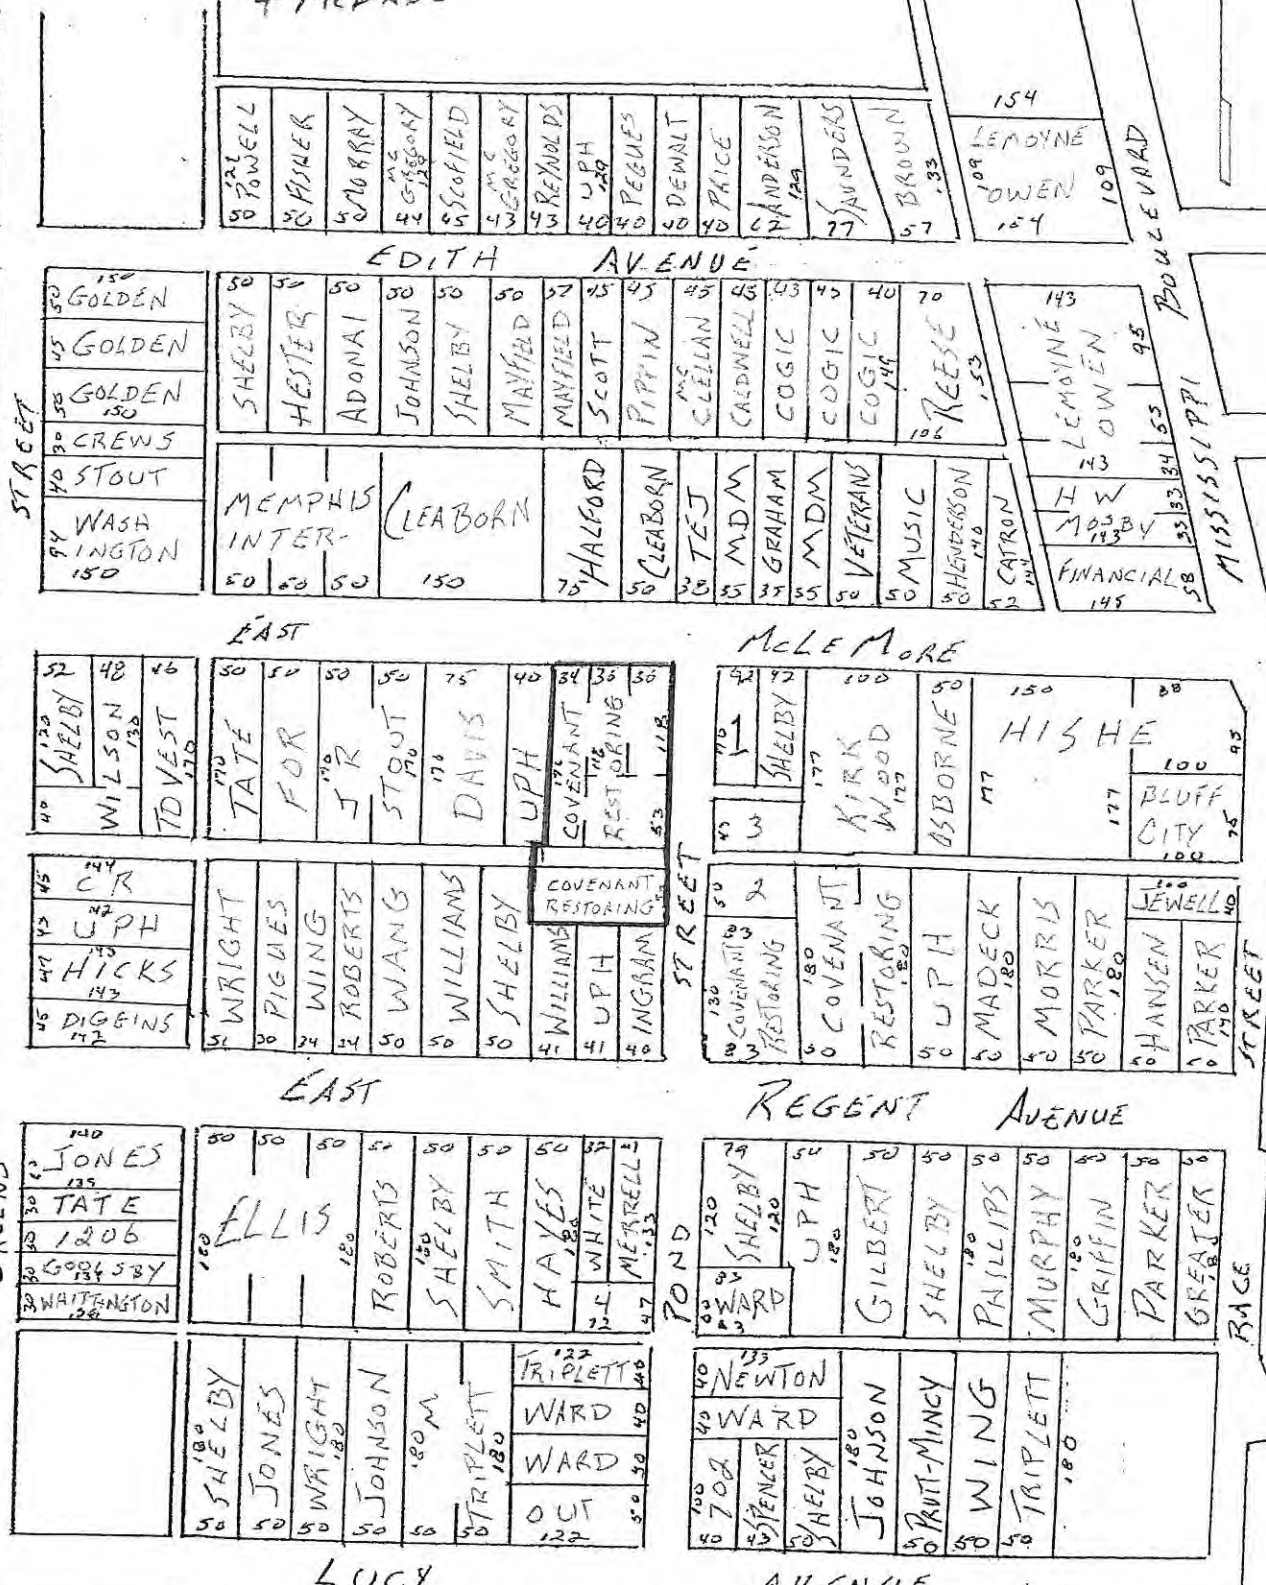 122
POWELL
50
FISHER
50
MOBRAY
50
MC
GREGORY
129
44
SCOFIELD
45
MC
GREGORY
43
REYNOLDS
43
UPH
129
40
PEGUES
40
DEWALT
40
PRICE
40
ANDERSON
129
62
SAUNDERS
77
BROWN
133
57
154
LEMOYNE
OWEN
109
109
154
BOULEVARD
EDITH AVENUE
150
50 GOLDEN
45 GOLDEN
50 GOLDEN
150
30 CREWS
40 STOUT
94 WASH
INGTON
150
STREET
50
SHELBY
50
HESTER
50
ADONAI
50
JOHNSON
50
SHELBY
50
MAYFIELD
52
MAYFIELD
45
SCOTT
45
PIPPIN
45
MC
CLELLAN
45
CALDWELL
43
COGIC
45
COGIC
40
COGIC
149
70
REESE
153
106
143
LEMOYNE
OWEN
95
55
34
143
H W
MOSBY
143
33
33
FINANCIAL
58
145
MISSISSIPPI
MEMPHIS
INTER-
50 50 50
CLEABORN
150
HALFORD
75
CLEABORN
50
TEJ
38
MDM
55
GRAHAM
35
MDM
35
VETERANS
50
MUSIC
50
HENDERSON
140
50
CATRON
144
52
EAST McLEMORE
52
120
SHELBY
40
48
WILSON
130
46
TDVEST
170
50
170
TATE
50
FOR
50
170
JR
50
STOUT
170
75
170
DAVIS
40
UPH
34
COVENANT
176
36
RESTORING
118
36
118
53
COVENANT
RESTORING
42
1
42
SHELBY
43
3
100
177
KIRK
WOOD
177
50
OSBORNE
150
HISHE
177
177
88
95
100
BLUFF
CITY
75
100
144
45 CR
142
43 UPH
143
47 HICKS
143
45 DIGGINS
142
WRIGHT
51
PIGUES
30
WING
34
ROBERTS
34
WANG
50
WILLIAMS
50
SHELBY
50
WILLIAMS
41
UPH
41
INGRAM
40
STREET
50 2
83
130
COVENANT
RESTORING
83
180
COVENANT
50
RESTORING
180
UPH
50
MADECK
180
50
MORRIS
50
PARKER
180
50
100
JEWELL
40
HANSEN
50
PARKER
140
50
STREET
EAST REGENT AVENUE
140
JONES
135
30 TATE
30 1206
30 GOOLSBY
134
30 WHITTINGTON
50 50 50
180
ELLIS
180
50
ROBERTS
50
180
SHELBY
50
SMITH
50
HAYES
180
32
WHITE
41
MERRELL
133
1
72
47
POND
79
120
SHELBY
120
83
60
WARD
83
50
UPH
180
50
GILBERT
50
SHELBY
50
180
PHILLIPS
50
MURPHY
50
180
GRIFFIN
50
PARKER
50
GREATER
RACE
180
SHELBY
50
JONES
50
WRIGHT
180
50
JOHNSON
50
180 M
50
TRIPLETT
180
50
122
TRIPLETT 40
WARD 40
WARD 50
OUT 50
122
133
40 NEWTON
40 WARD
100
702
40
SPENCER
43
SHELBY
50
180
JOHNSON
PRUTT-MINCY
50
WING
50
TRIPLETT
50
180
LUCY AVENUE